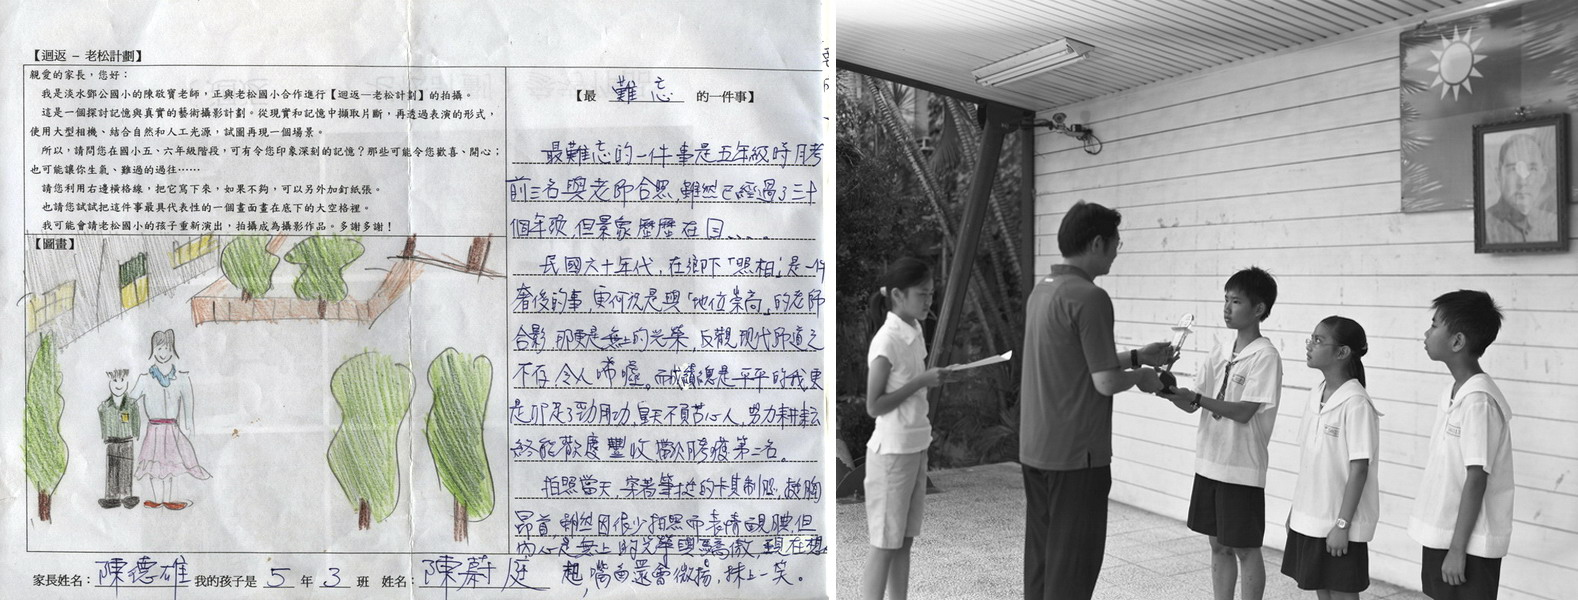 【迴返－老松計劃】
親愛的家長，您好：
我是淡水鄧公國小的陳敬寶老師，正與老松國小合作進行【迴返—老松計劃】的拍攝。
這是一個探討記憶與真實的藝術攝影計劃。從現實和記憶中擷取片斷，再透過表演的形式，
使用大型相機、結合自然和人工光源，試圖再現一個場景。
所以，請問您在國小五、六年級階段，可有令您印象深刻的記憶？那些可能令您歡喜、開心；
也可能讓你生氣、難過的過往……
請您利用右邊橫格線，把它寫下來，如果不夠，可以另外加釘紙張。
也請您試試把這件事最具代表性的一個畫面畫在底下的大空格裡。
我可能會請老松國小的孩子重新演出，拍攝成為攝影作品。多謝多謝！
【圖畫】
【最 難忘 的一件事】
最難忘的一件事是五年級時月考
前三名與老師合照，雖然已經過了三十
個年頭，但景象歷歷在目....
民國六十年代，在鄉下「照相」是一件
奢侈的事，更何況是與「地位崇高」的老師
合影，那更是無上的光榮，反觀現代師道之
不存，令人唏噓。而成績總是平平的我更
是卯足了勁用功，皇天不負苦心人，努力耕耘
終能歡度豐收，首次勝疫第三名。
拍照當天，穿著筆挺的卡其制服，挺胸
昂首，雖然因很少拍照而表情靦腆，但
內心是無上的光榮與驕傲，現在想
起，嘴角還會微揚，抹上一笑。
家長姓名：陳德雄 我的孩子是 5 年 3 班 姓名：陳蔚庭